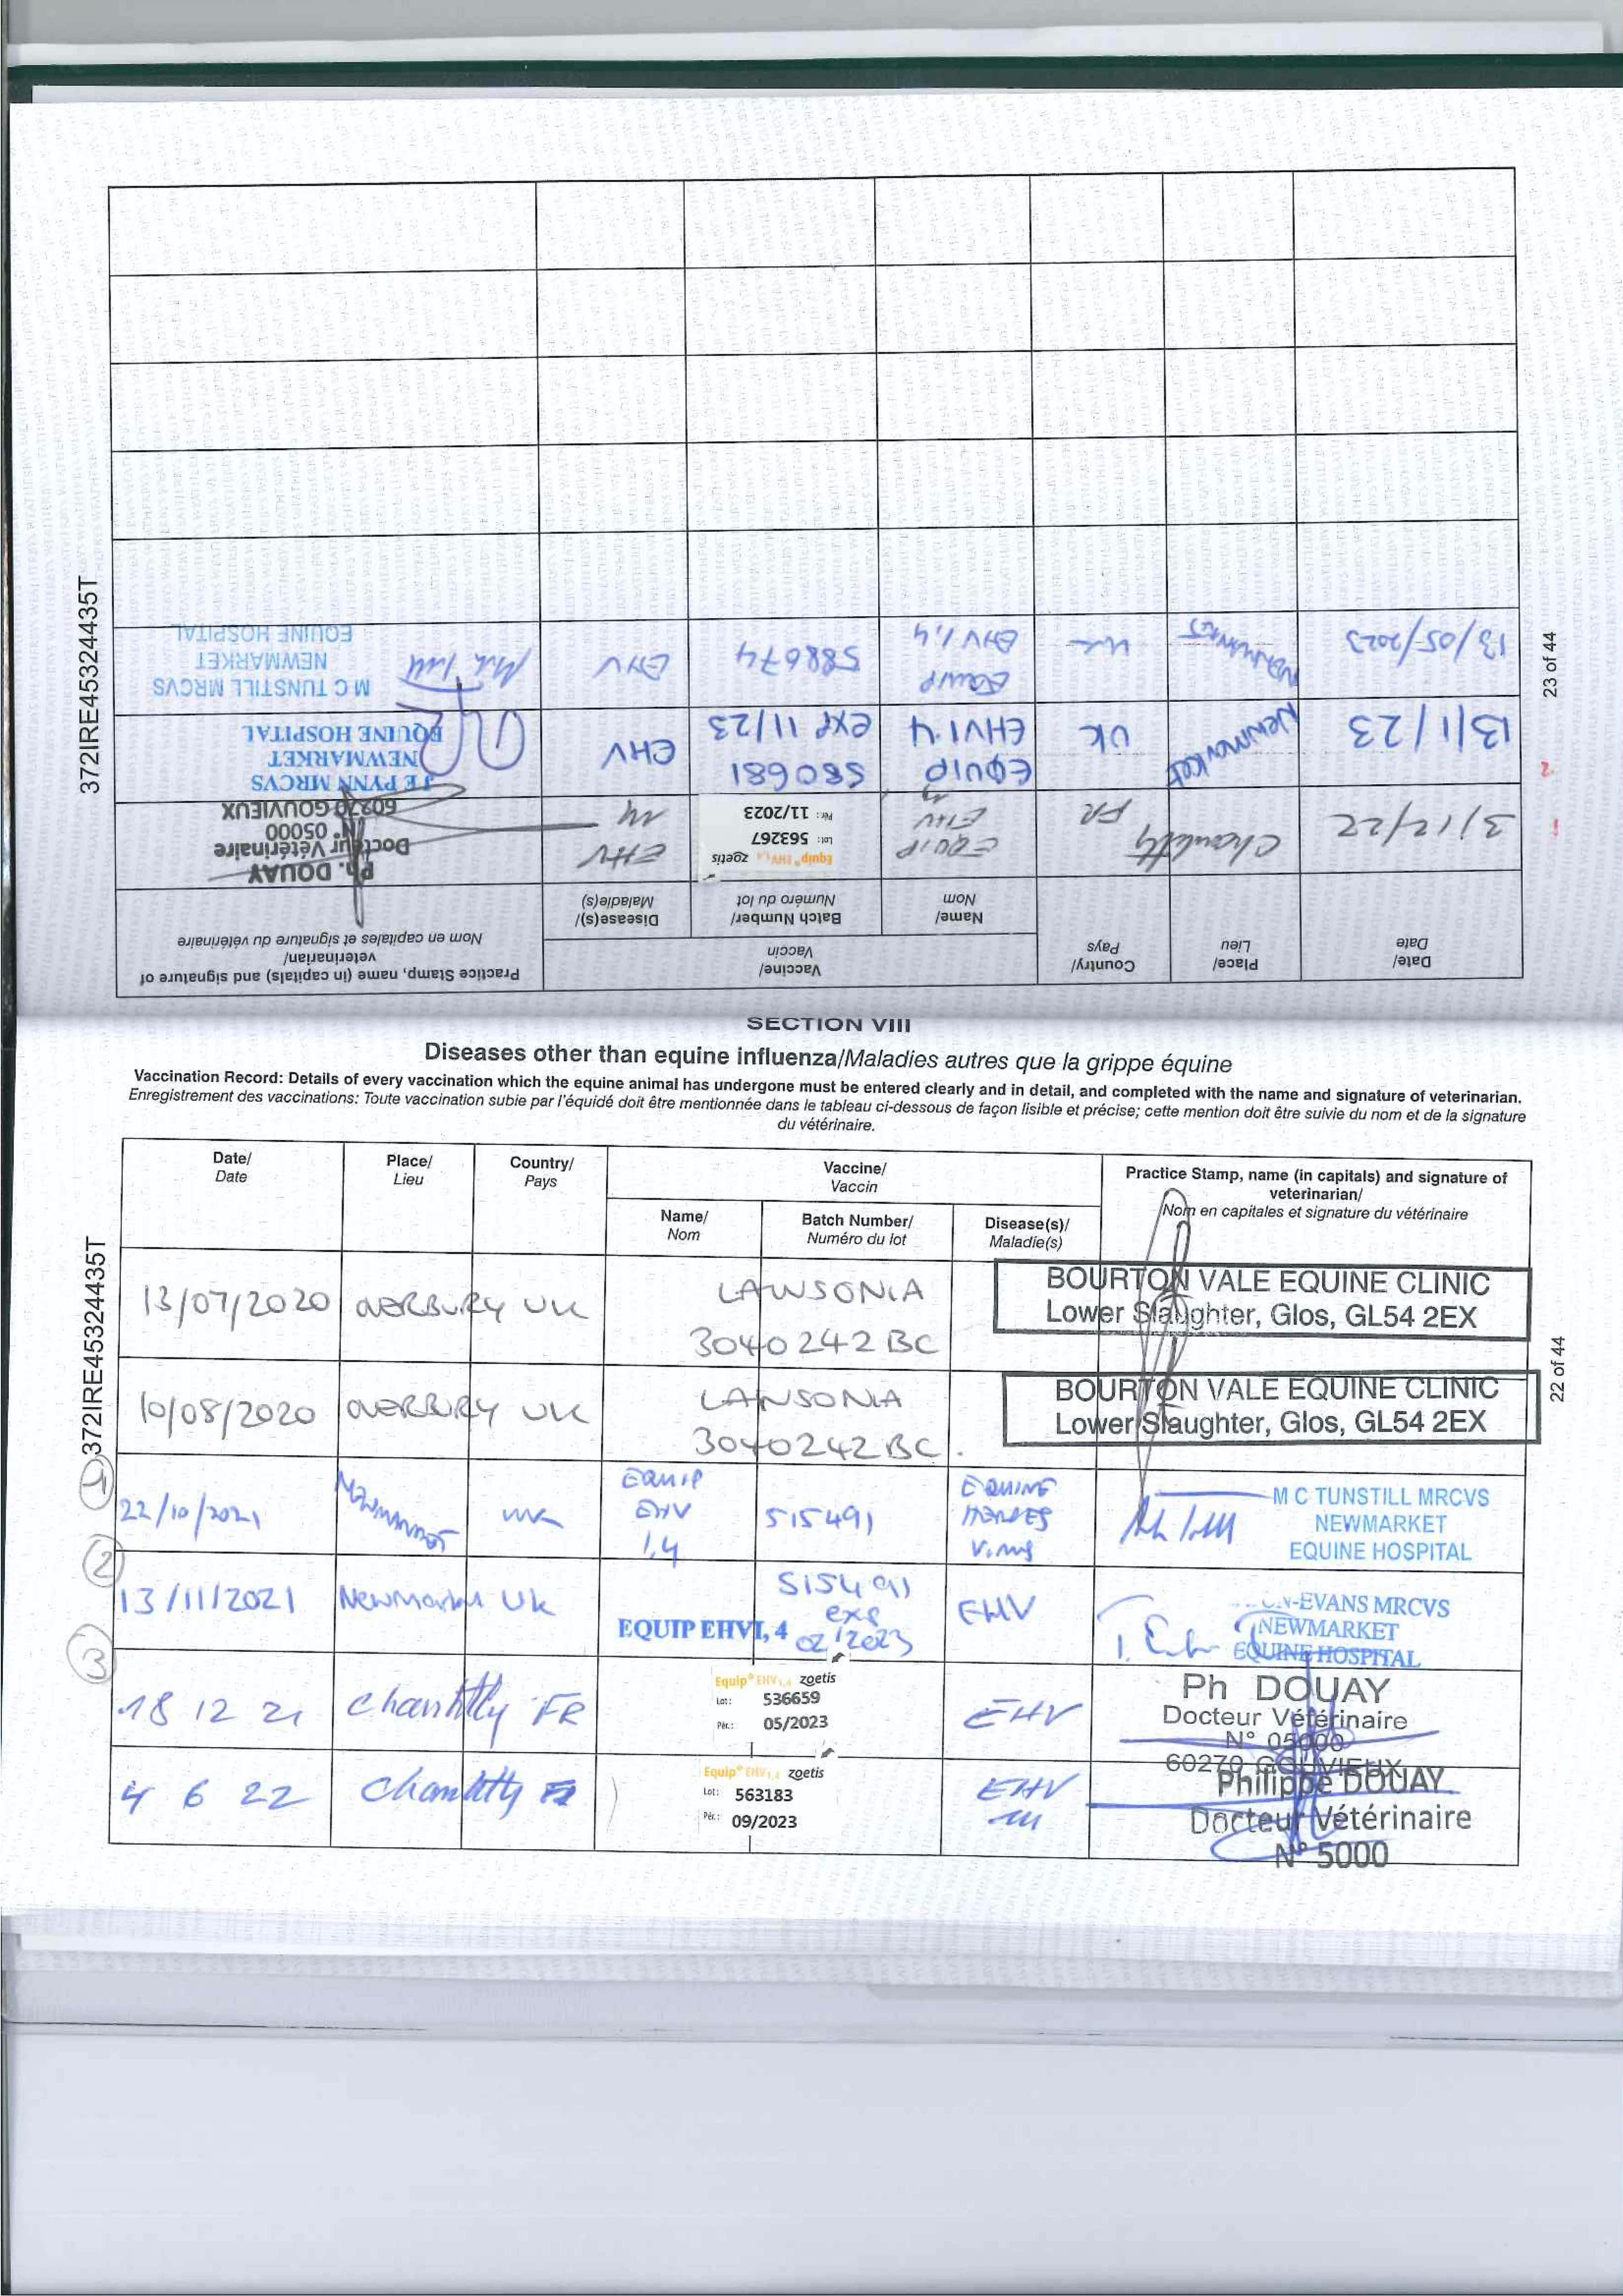 372IRE45324435T
23 of 44
Date/
Date
Place/
Lieu
Country/
Pays
Vaccine/
Vaccin
Name/
Nom
Batch Number/
Numéro du lot
Disease(s)/
Maladie(s)
Practice Stamp, name (in capitals) and signature of
veterinarian/
Nom en capitales et signature du vétérinaire
!
3/12/22 Chantilly FR
EQUIP
EHV
Equip® EHV1,4 zoetis
Lot: 563267
Pér.: 11/2023
EHV
Ph. DOUAY
Docteur Vétérinaire
N° 05000
60270 GOUVIEUX
2
13/1/23 Newmarket UK
EQUIP
EHV1.4
580681
exp 11/23
EHV
JE PYNN MRCVS
NEWMARKET
EQUINE HOSPITAL
13/05/2023 NEWMARKET UK
EQUIP
EHV 1,4
588674
EHV
M C TUNSTILL MRCVS
NEWMARKET
EQUINE HOSPITAL
SECTION VIII
Diseases other than equine influenza/Maladies autres que la grippe équine
Vaccination Record: Details of every vaccination which the equine animal has undergone must be entered clearly and in detail, and completed with the name and signature of veterinarian.
Enregistrement des vaccinations: Toute vaccination subie par l'équidé doit être mentionnée dans le tableau ci-dessous de façon lisible et précise; cette mention doit être suivie du nom et de la signature
du vétérinaire.
372IRE45324435T
22 of 44
Date/
Date
Place/
Lieu
Country/
Pays
Vaccine/
Vaccin
Name/
Nom
Batch Number/
Numéro du lot
Disease(s)/
Maladie(s)
Practice Stamp, name (in capitals) and signature of
veterinarian/
Nom en capitales et signature du vétérinaire
13/07/2020 OVERBURY UK
LAWSONIA
3040242BC
BOURTON VALE EQUINE CLINIC
Lower Slaughter, Glos, GL54 2EX
10/08/2020 OVERBURY UK
LAWSONIA
3040242BC.
BOURTON VALE EQUINE CLINIC
Lower Slaughter, Glos, GL54 2EX
1
22/10/2021 NEWMARKET UK
EQUIP
EHV
1,4
515491
EQUINE
HERPES
VIRUS
M C TUNSTILL MRCVS
NEWMARKET
EQUINE HOSPITAL
2
13/11/2021 Newmarket UK
EQUIP EHV1, 4
515491
exp
02/2023
EHV
N-EVANS MRCVS
NEWMARKET
EQUINE HOSPITAL
3
18 12 21 Chantilly FR
Equip® EHV1,4 zoetis
Lot: 536659
Pér.: 05/2023
EHV
Ph DOUAY
Docteur Vétérinaire
N° 05000
60270 GOUVIEUX
4 6 22 Chantilly FR
Equip® EHV1,4 zoetis
Lot: 563183
Pér.: 09/2023
EHV
Philippe DOUAY
Docteur Vétérinaire
N° 5000